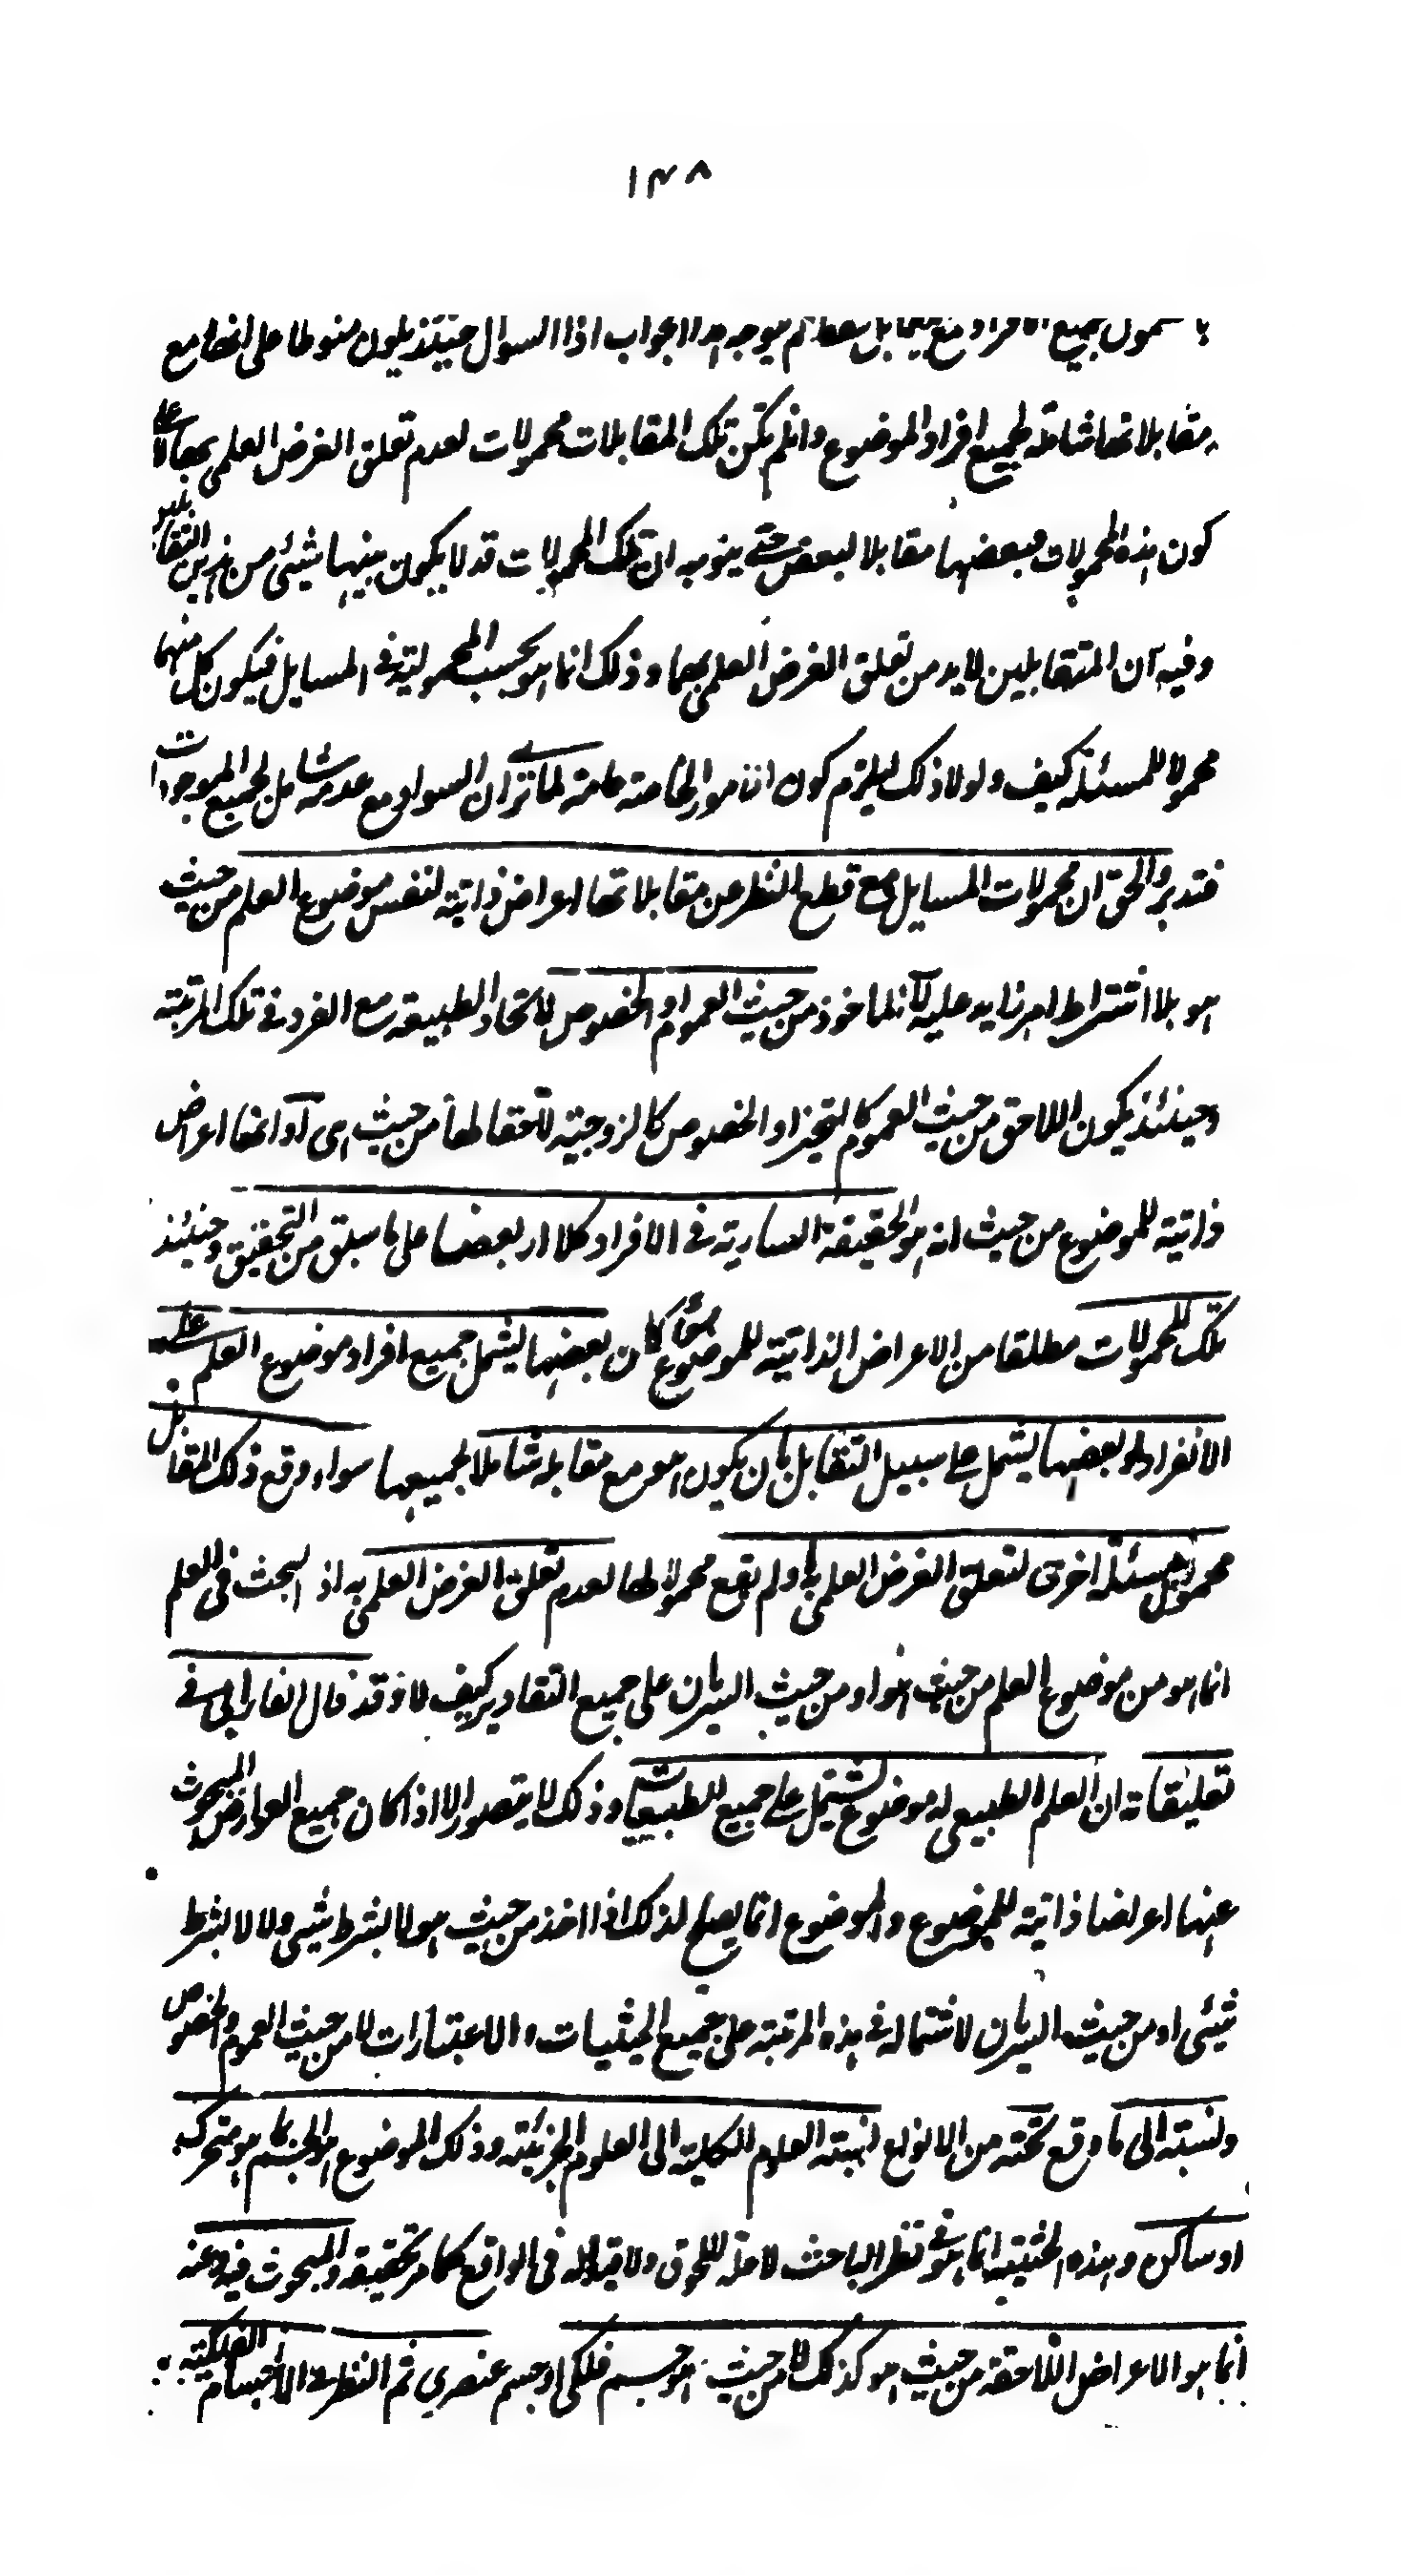 ١٣٨
جميع الافراد مع لم يتوجه الجواب اذ السوال حينئذ يكون منوطا على انها مع
مقابلاتها شاملة لجميع افراد الموضوع وانلم تكن تلك المقابلات محمولات لعدم تعلق الغرض العلمى بها لا على
كون هذه المحمولات بعضها مقابلا لبعض حتى يتوجه ان تلك المحمولات قد لا يكون بينها شيئ من التقابل
وفيه ان المتقابلين لا بد من تعلق الغرض العلمى بهما وذلك انما هو بحسب المحمولية فى المسايل فيكون كل منهما
محمولا للمسئلة كيف ولولا ذلك ليلزم كون الامور الخاصة عامة لما ترى ان السواد مع عدمه شامل لجميع الموجودات
فتدبر والحق ان محمولات المسايل مع قطع النظر عن مقابلاتها اعراض ذاتية لنفس موضوع العلم من حيث
هو بلا اشتراط امر زايد عليه لا انه ماخوذ من حيث العموم او الخصوص لاتحاد الطبيعة مع الفرد فى تلك المرتبة
وحينئذ يكون اللاحق من حيث العموم كالتحيز او الخصوص كالزوجية من حيث هى اعراض
ذاتية للموضوع من حيث انه هو الحقيقة السارية فى الافراد كلا او بعضا على ما سبق من التحقيق وحينئذ
تلك المحمولات مطلقا من الاعراض الذاتية للموضوع سواء كان بعضها يشمل جميع افراد موضوع العلم على
الانفراد او بعضها يشمل على سبيل التقابل بان يكون هو مع مقابله شاملا لجميعها سواء وقع ذلك المقابل
محمولا لمسئلة اخرى لتعلق الغرض العلمى به او لم يقع محمولا لها لعدم تعلق الغرض العلمى به اذ البحث فى العلم
انما هو من موضوع العلم من حيث هو او من حيث السريان على جميع التقادير كيف لا وقد قال الفارابى فى
تعليقاته ان العلم الطبيعى له موضوع يشتمل على جميع الطبيعيات وذلك لا يتصور الا اذا كان جميع العوارض المبحوث
عنها اعراضا ذاتية للموضوع والموضوع انما يصلح لذلك اذا اخذ من حيث هو لا بشرط شيئ ولا لا بشرط
شيئ او من حيث السريان لاشتماله فى هذه المرتبة على جميع الحيثيات والاعتبارات لا من حيث العموم والخصوص
ونسبته الى ما وقع تحته من الانواع نسبة العلوم الكلية الى العلوم الجزئية وذلك الموضوع هو الجسم بما هو متحرك
او ساكن وهذه الحيثية انما هو فى نظر الباحث لا علة للحوق ولا قيد له فى الواقع كما مر تحقيقه والمبحوث فيه عنه
انما هو الاعراض اللاحقة من حيث هو كذلك لا من حيث هو جسم فلكى او جسم عنصرى ثم النظر فى الاجسام الفلكية